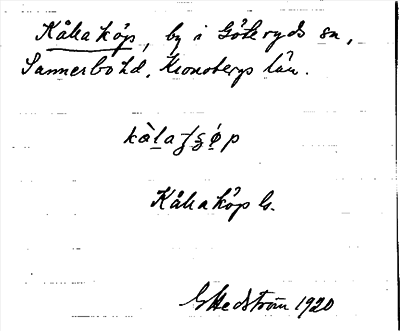 Kållaköp, by i Göteryds sn,
Sunnerbo hd, Kronobergs län.
Kållaköp G.
G Hedström 1920